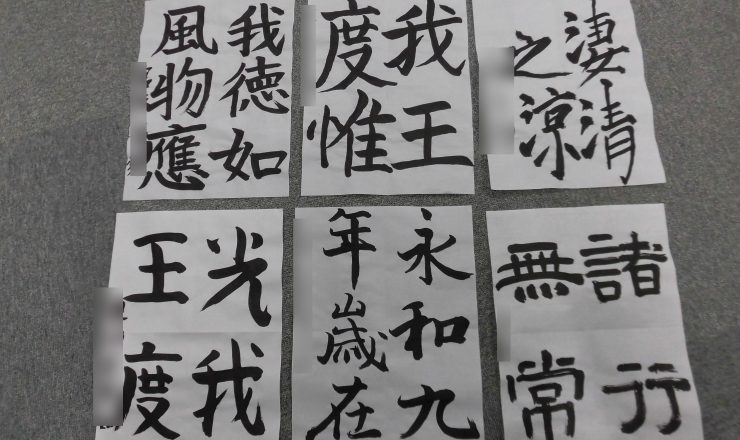 我徳如
風物應
我王
度惟
淒清
之涼
光我
王度
永和九
年歳在
諸行
無常